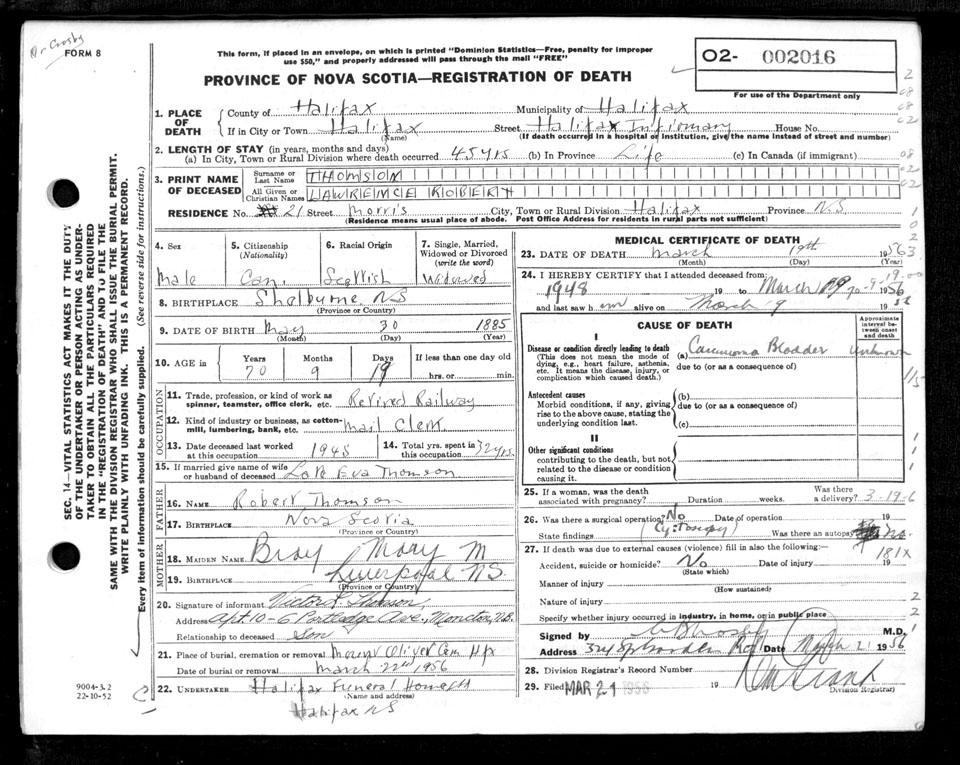 Dr Crosby
FORM 8
This form, if placed in an envelope, on which is printed "Dominion Statistics—Free, penalty for improper
use $50," and properly addressed will pass through the mail "FREE"
PROVINCE OF NOVA SCOTIA—REGISTRATION OF DEATH
O2- 002016
For use of the Department only
1. PLACE OF DEATH
County of Halifax Municipality of Halifax
If in City or Town Halifax Street Halifax Infirmary House No.
(Name) (If death occurred in a hospital or institution, give the name instead of street and number)
2. LENGTH OF STAY (in years, months and days)
(a) In City, Town or Rural Division where death occurred 45 yrs (b) In Province Life (c) In Canada (if immigrant)
3. PRINT NAME OF DECEASED
Surname or Last Name THOMSON
All Given or Christian Names LAWRENCE ROBERT
RESIDENCE No. 21 Street Morris City, Town or Rural Division Halifax Province N.S
(Residence means usual place of abode. Post Office Address for residents in rural parts not sufficient)
4. Sex Male
5. Citizenship (Nationality) Can.
6. Racial Origin Scottish
7. Single, Married, Widowed or Divorced (write the word) Widowed
8. BIRTHPLACE Shelburne, N.S
(Province or Country)
9. DATE OF BIRTH May 30 1885
(Month) (Day) (Year)
10. AGE in Years 70 Months 9 Days 19 If less than one day old hrs. or min.
OCCUPATION
11. Trade, profession, or kind of work as spinner, teamster, office clerk, etc. Retired Railway
12. Kind of industry or business, as cotton-mill, lumbering, bank, etc. Mail Clerk
13. Date deceased last worked at this occupation 1945
14. Total yrs. spent in this occupation 32 yrs.
15. If married give name of wife or husband of deceased Late Eva Thomson
FATHER
16. NAME Robert Thomson
17. BIRTHPLACE Nova Scotia
(Province or Country)
MOTHER
18. MAIDEN NAME Bray Mary M
19. BIRTHPLACE Liverpool N.S.
(Province or Country)
20. Signature of informant Victor L. Thomson
Address Apt. 10-6 Partledge Ave., Moncton, N.B.
Relationship to deceased Son
21. Place of burial, cremation or removal Mount Olivet Cem Hfx
Date of burial or removal March 22nd 1956
22. UNDERTAKER Halifax Funeral Home
(Name and address)
Halifax N.S
MEDICAL CERTIFICATE OF DEATH
23. DATE OF DEATH March 19th 1956
(Month) (Day) (Year)
24. I HEREBY CERTIFY that I attended deceased from:
1948 19 to March 19 1956
and last saw him alive on March 9 19 56
CAUSE OF DEATH
Approximate interval between onset and death
I
Disease or condition directly leading to death (a) Carcinoma Bladder unknown
(This does not mean the mode of dying, e.g., heart failure, asthenia, etc. It means the disease, injury, or complication which caused death.)
due to (or as a consequence of)
Antecedent causes
Morbid conditions, if any, giving rise to the above cause, stating the underlying condition last.
(b)
due to (or as a consequence of)
(c)
II
Other significant conditions
contributing to the death, but not related to the disease or condition causing it.
25. If a woman, was the death associated with pregnancy? Duration weeks. Was there a delivery? 3-19-6
26. Was there a surgical operation? No Date of operation 19
State findings Was there an autopsy? No.
181X
27. If death was due to external causes (violence) fill in also the following:—
Accident, suicide or homicide? No Date of injury 19
(State which)
Manner of injury
(How sustained)
Nature of injury
Specify whether injury occurred in industry, in home, or in public place
Signed by M.D.
Address 324 Date March 21 1956
28. Division Registrar's Record Number
29. Filed MAR 21 1956 19
Division Registrar)
SEC. 14—VITAL STATISTICS ACT MAKES IT THE DUTY
OF THE UNDERTAKER OR PERSON ACTING AS UNDER-
TAKER TO OBTAIN ALL THE PARTICULARS REQUIRED
IN THE "REGISTRATION OF DEATH" AND TO FILE THE
SAME WITH THE DIVISION REGISTRAR WHO SHALL ISSUE THE BURIAL PERMIT.
WRITE PLAINLY WITH UNFADING INK. THIS IS A PERMANENT RECORD.
Every item of information should be carefully supplied. (See reverse side for instructions.)
9004-3.2
22-10-52